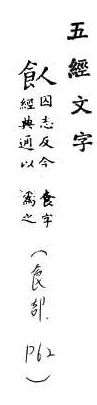 五經文字
飤 囚志反今食字
經典通以爲之
（食部. P62）